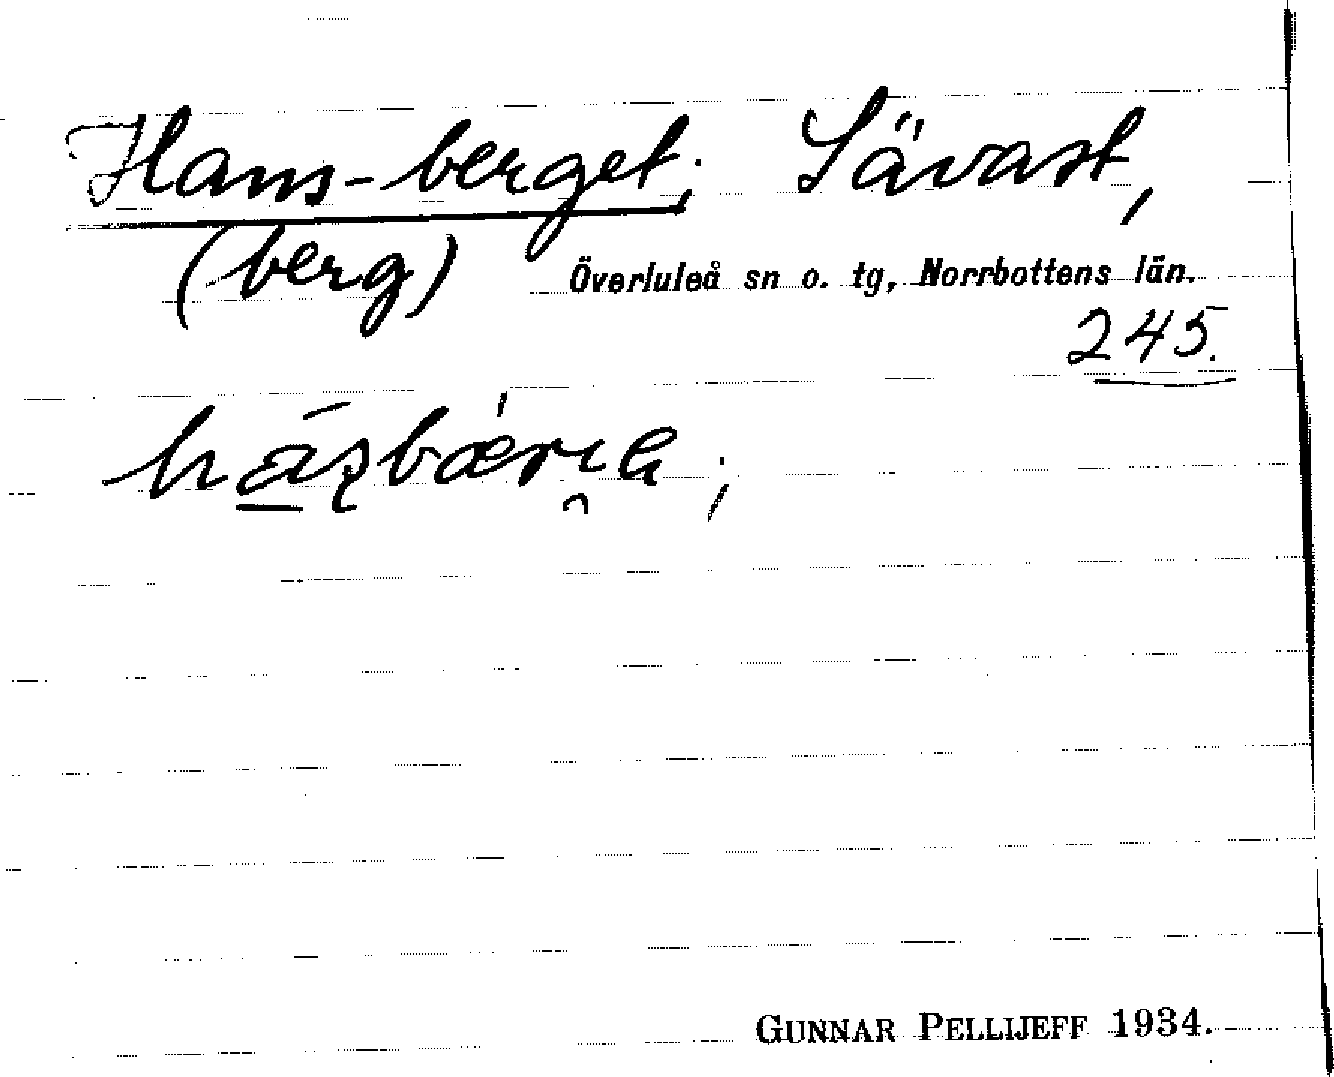 Hans-berget; Sävast,
(berg) Överluleå sn o. tg, Norrbottens län.
245.
GUNNAR PELLIJEFF 1934.